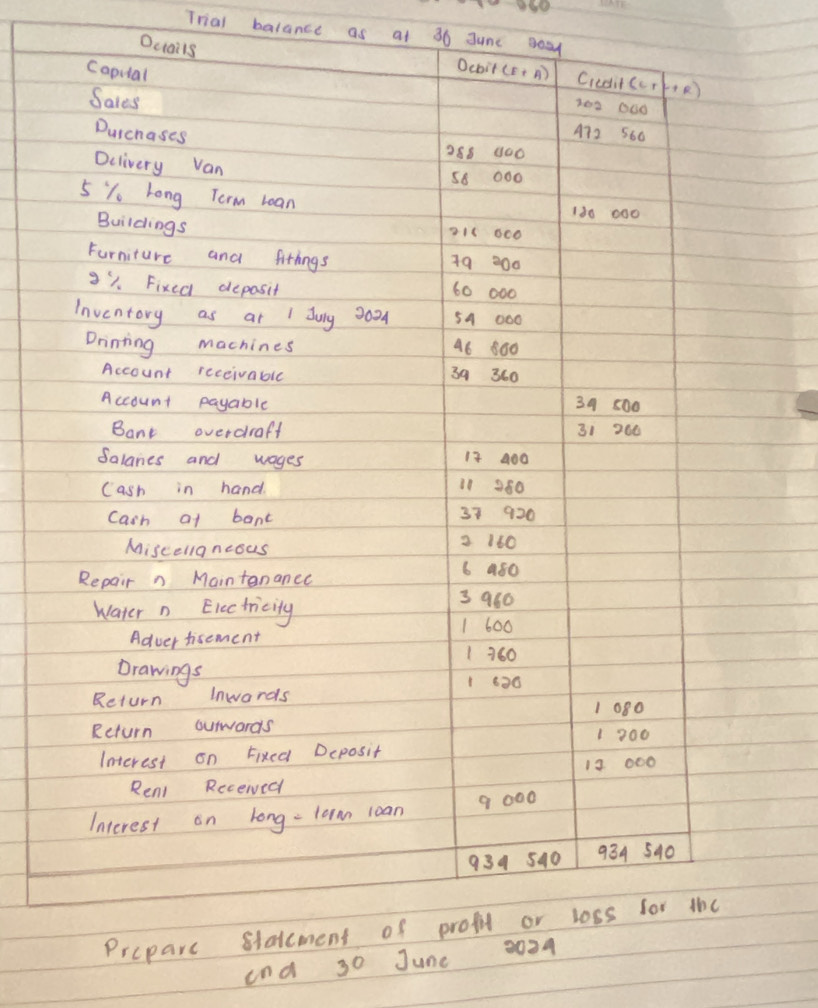 Trial balance as at 30 June 2024
Details Debit (E + A) Credit (L + + R)
Capital 000
Sales 472 560
Purchases 288 000
Delivery Van 58 000
5 % Long Term loan 120 000
Buildings 216 000
Furniture and fittings 79 200
2 % Fixed deposit 60 000
Inventory as at 1 July 2024 54 000
Printing machines 46 800
Account receivable 39 360
Account payable 500
Bank overdraft 31 200
Salaries and wages 17 400
Cash in hand 11 280
Cash at bank 37 920
Miscellaneous 2 160
Repair n Maintanance 6 480
Water n Electricity 3 960
Advertisement 1 600
Drawings 1 760
Return Inwards 1 620
Return outwards 1 080
Interest on Fixed Deposit 1 200
Rent Received 12 000
Interest on long-term loan 9 000
934 540 934 540
Prepare Statement of profit or loss for the
end 30 June 2024